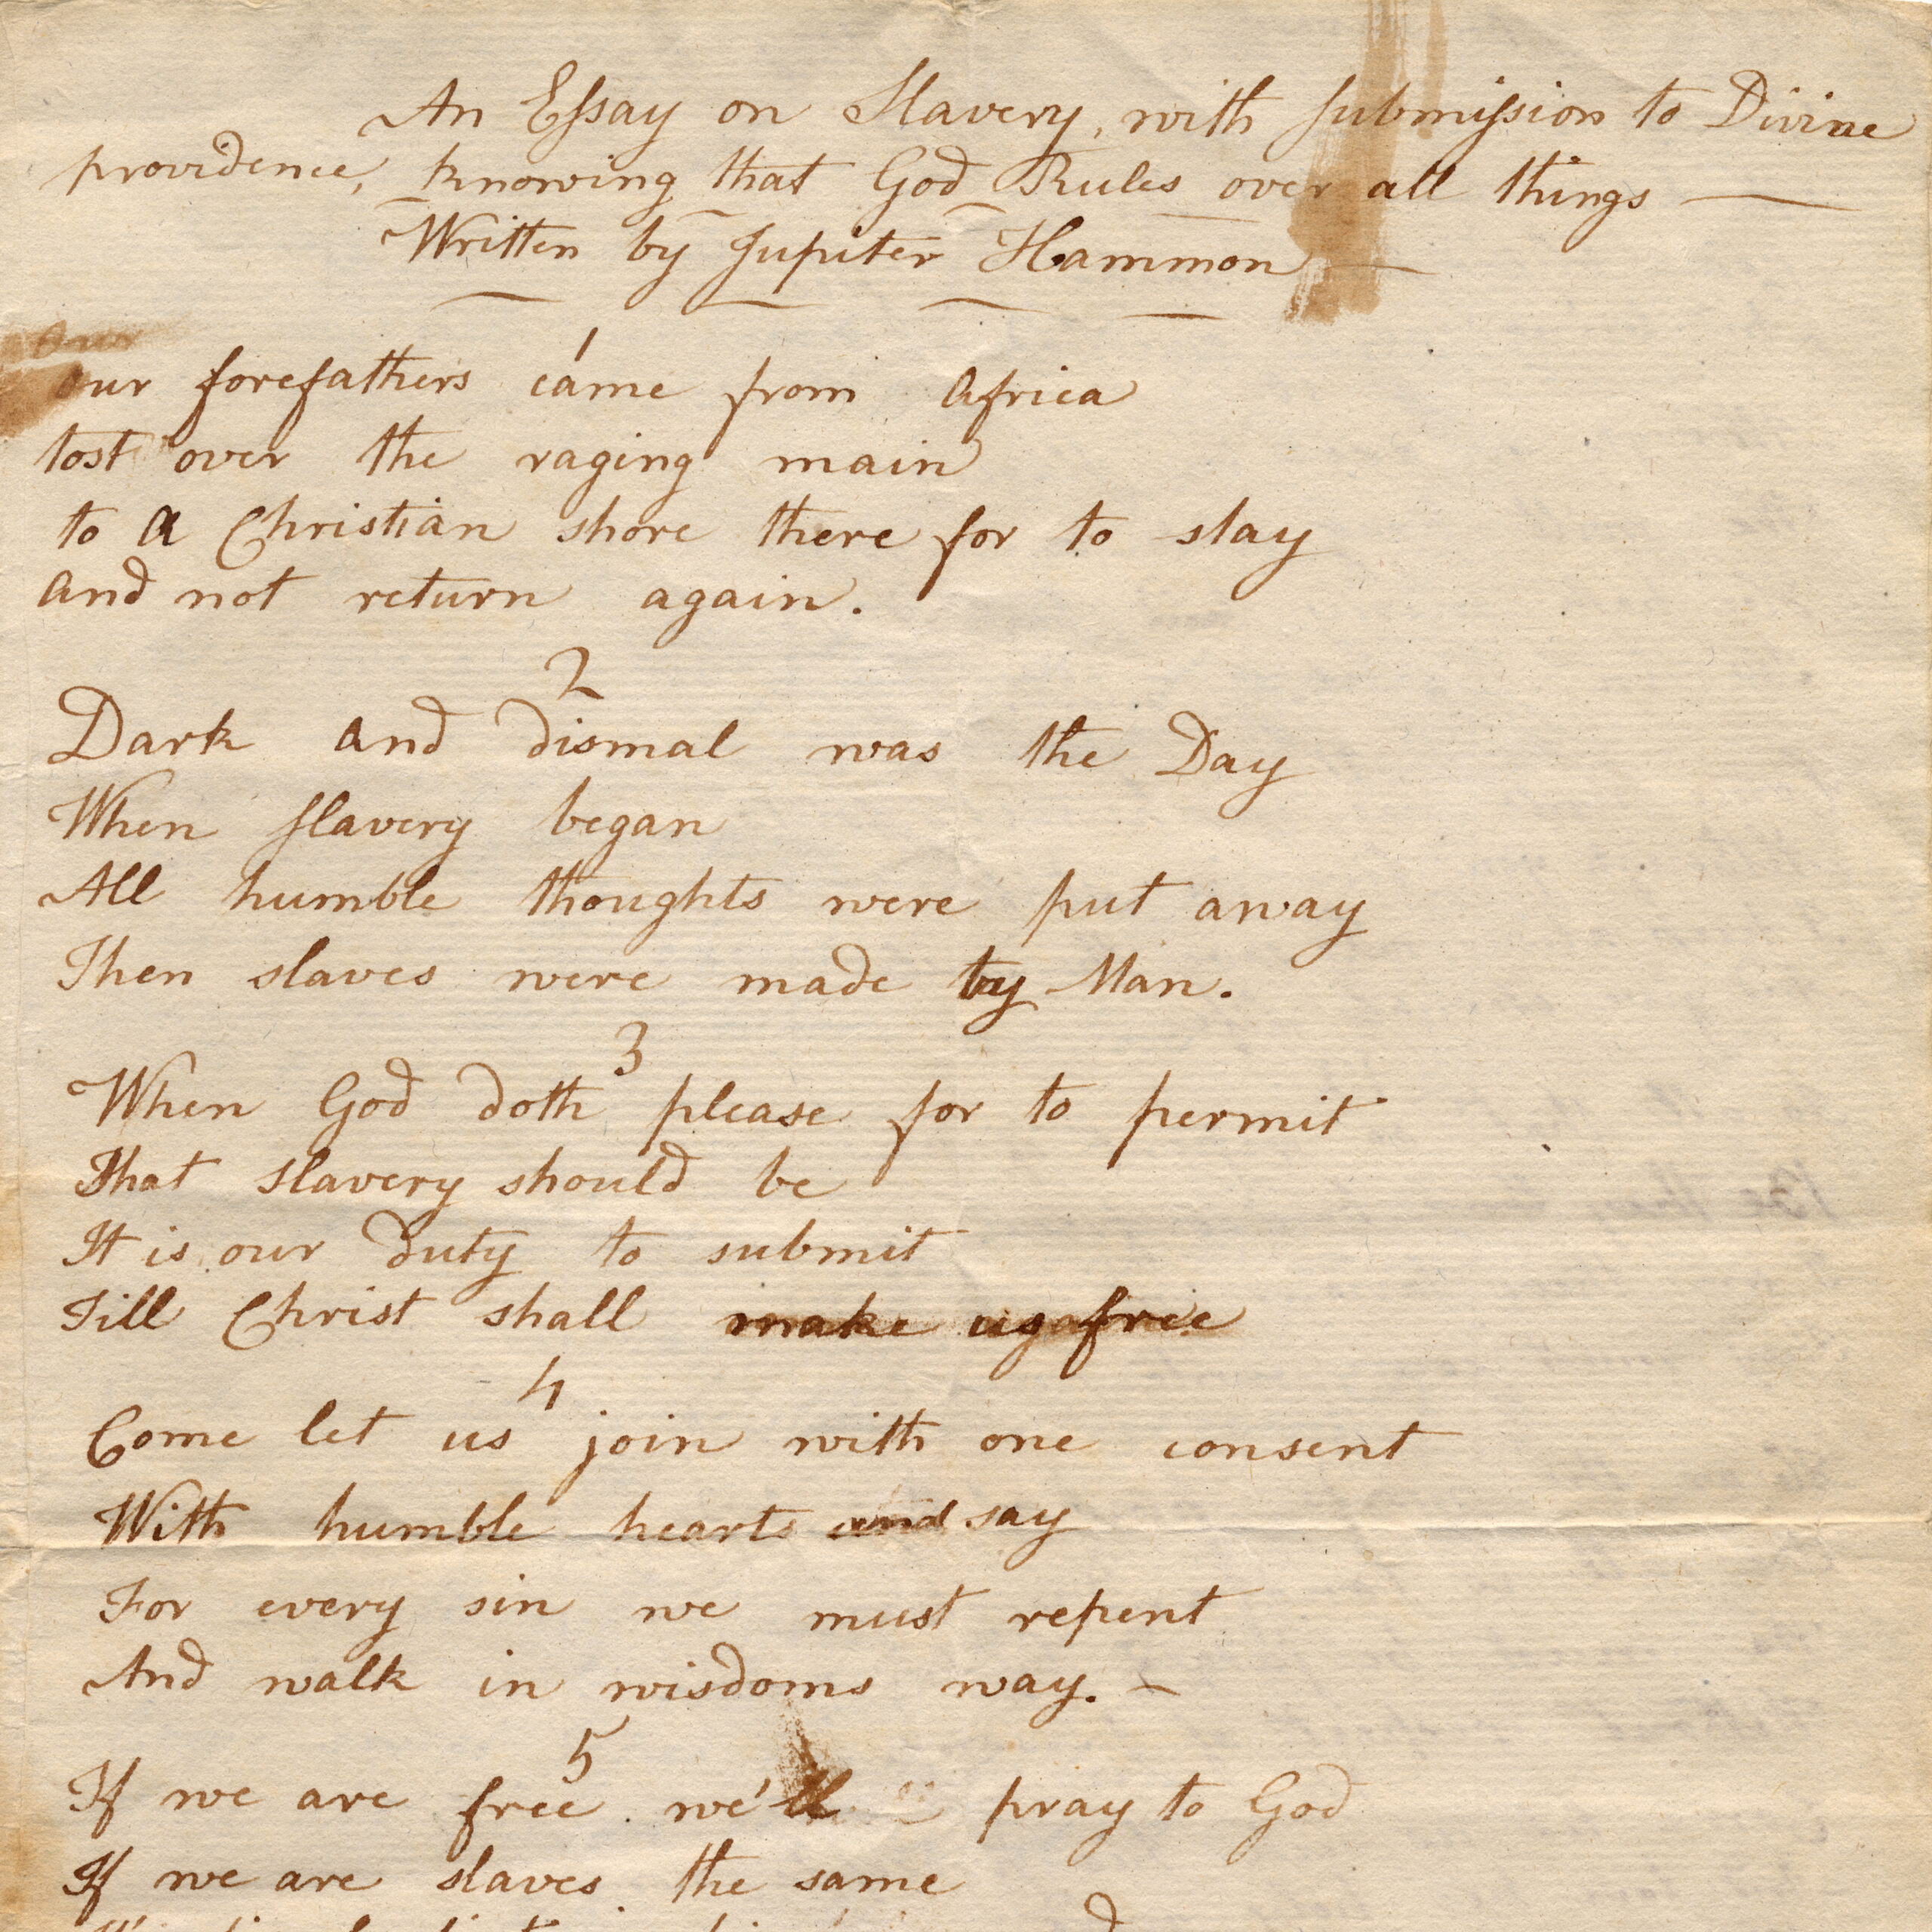 An Eſsay on Slavery, with ſubmiſsion to Divine
providence, knowing that God Rules over all things —
Written by Jupiter Hammon —
1
Our forefathers came from Africa
tost over the raging main
to a Christian shore there for to stay
and not return again.
2
Dark and dismal was the Day
When ſlavery began
All humble thoughts were put away
Then slaves were made by Man.
3
When God doth please for to permit
That slavery should be
It is our duty to submit
Till Christ shall make us free
4
Come let us join with one consent
With humble hearts and say
For every sin we must repent
And walk in wisdoms way. –
5
If we are free we'll pray to God
If we are slaves the same